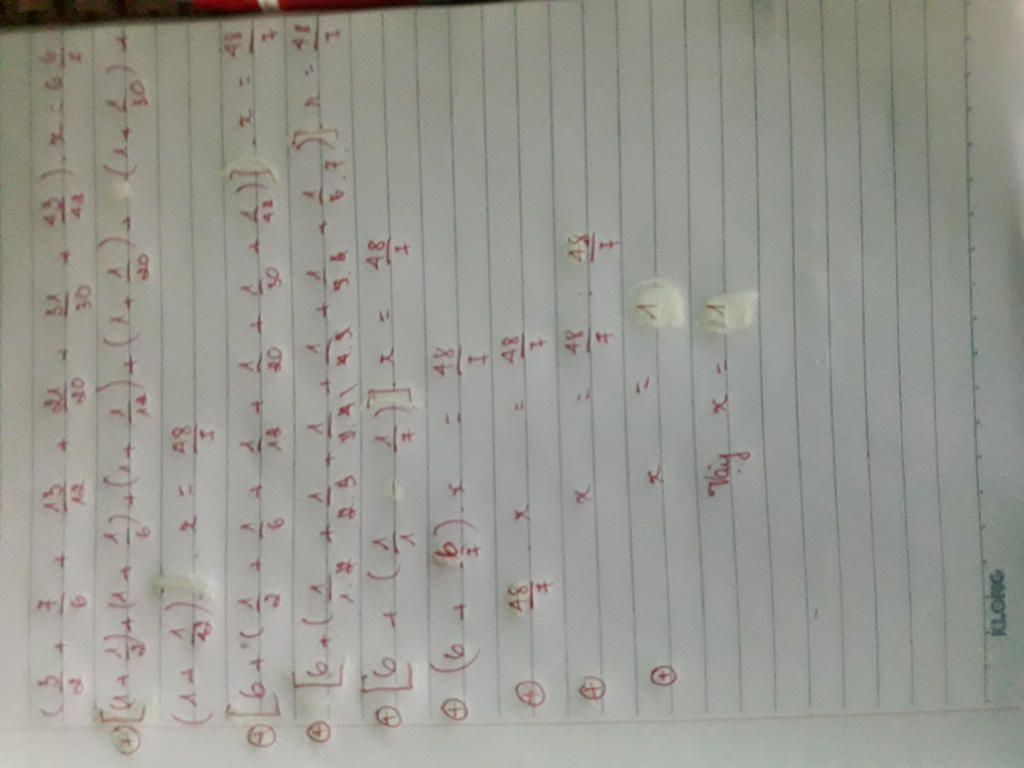 (3/2 + 7/6 + 13/12 + 21/20 + 31/30 + 43/42) . x = 6 6/7
⊕ [(1 + 1/2) + (1 + 1/6) + (1 + 1/12) + (1 + 1/20) + (1 + 1/30) +
(1 + 1/42)] . x = 48/7
⊕ [6 + (1/2 + 1/6 + 1/12 + 1/20 + 1/30 + 1/42)] . x = 48/7
⊕ [6 + (1/1.2 + 1/2.3 + 1/3.4 + 1/4.5 + 1/5.6 + 1/6.7)] . x = 48/7
⊕ [6 + (1/1 - 1/7)] . x = 48/7
⊕ (6 + 6/7) . x = 48/7
⊕ 48/7 x = 48/7
⊕ x = 48/7 . 48/7
⊕ x = 1
Vậy x = 1
KLONG